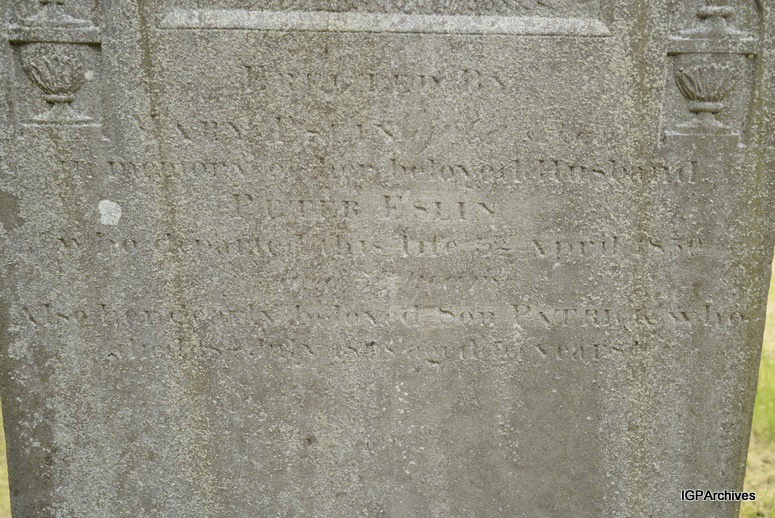 ERECTED BY
MARY ESLIN of
In memory of her beloved Husband
PETER ESLIN
who departed this life April 1850
aged years
Also her dearly beloved Son PATRICK who
died July aged years
IGPArchives